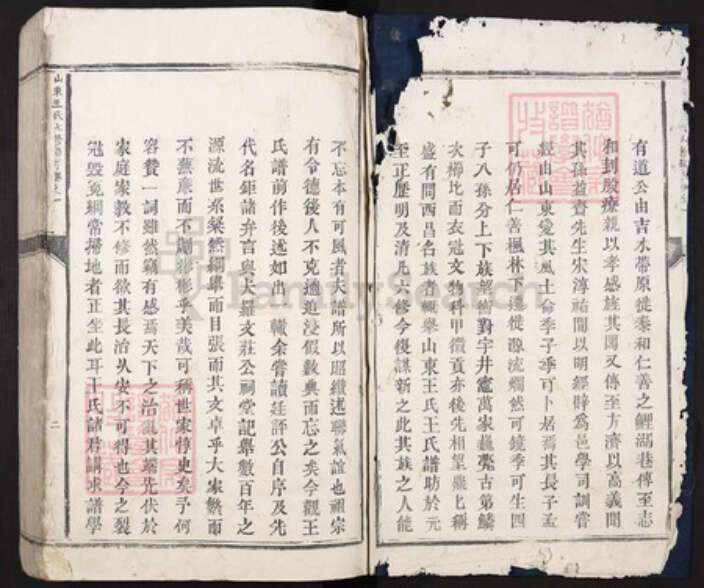 有道公由吉水帶原徙泰和仁善之鯉湖巷傳至志
和刲股療親以孝感旌其閭又傳至方濟以高義聞
其孫益齋先生宋淳祐間以明經辟為邑學司訓嘗
經由山東愛其風土命季子季可卜居焉其長子孟
可仍居仁善楓林下邊徙源流爛然可鏡季可生四
子八孫分上下族衡對宇井竈萬家甍古第鱗
次櫛比而衣冠文物科甲徵貢亦後先相望噪上稱
盛有問西昌名族者輒舉山東王氏王氏譜昉於元
至正歷明及清凡六修今復謀新之此其族之人能
不忘本有可風者夫譜所以昭纘述聯氣誼也祖宗
有令德後人不克遹追浸假數典而忘之矣今觀王
氏譜前作後述如出一轍余嘗讀廷評公自序及先
代名鉅諸弁言與夫羅文莊公祠堂記舉數百年之
源流世系粲然綱舉而目張而其文卓乎大家繁而
不蕪廉而不劌彬彬乎美哉可稱世家惇史矣予何
容贊一詞雖然竊有感焉天下之治亂其端先伏於
家庭家教不修而欲其長治久安不可得也今之裂
冠毀冕綱常掃地者正坐此耳王氏諸君講求譜學
二
FamilySearch